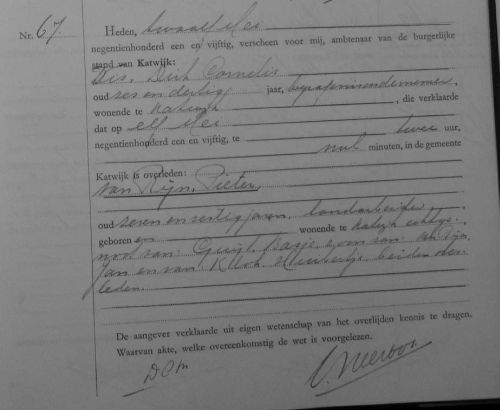 Nr. 67. Heden, twaalf Mei
negentienhonderd een en vijftig, verscheen voor mij, ambtenaar van de burgerlijke
stand van Katwijk:
Dirk Cornelis
oud zes en dertig jaar, begrafenisondernemer,
wonende te Katwijk, die verklaarde
dat op elf Mei
negentienhonderd een en vijftig, te twee uur,
nul minuten, in de gemeente
Katwijk is overleden:
van Rijn, Pieter,
oud zeven en zestig jaren, landarbeider,
geboren en wonende te Katwijk, echtge-
noot van zoon van: van Rijn,
Jan en van beiden over-
leden.
De aangever verklaarde uit eigen wetenschap van het overlijden kennis te dragen.
Waarvan akte, welke overeenkomstig de wet is voorgelezen.